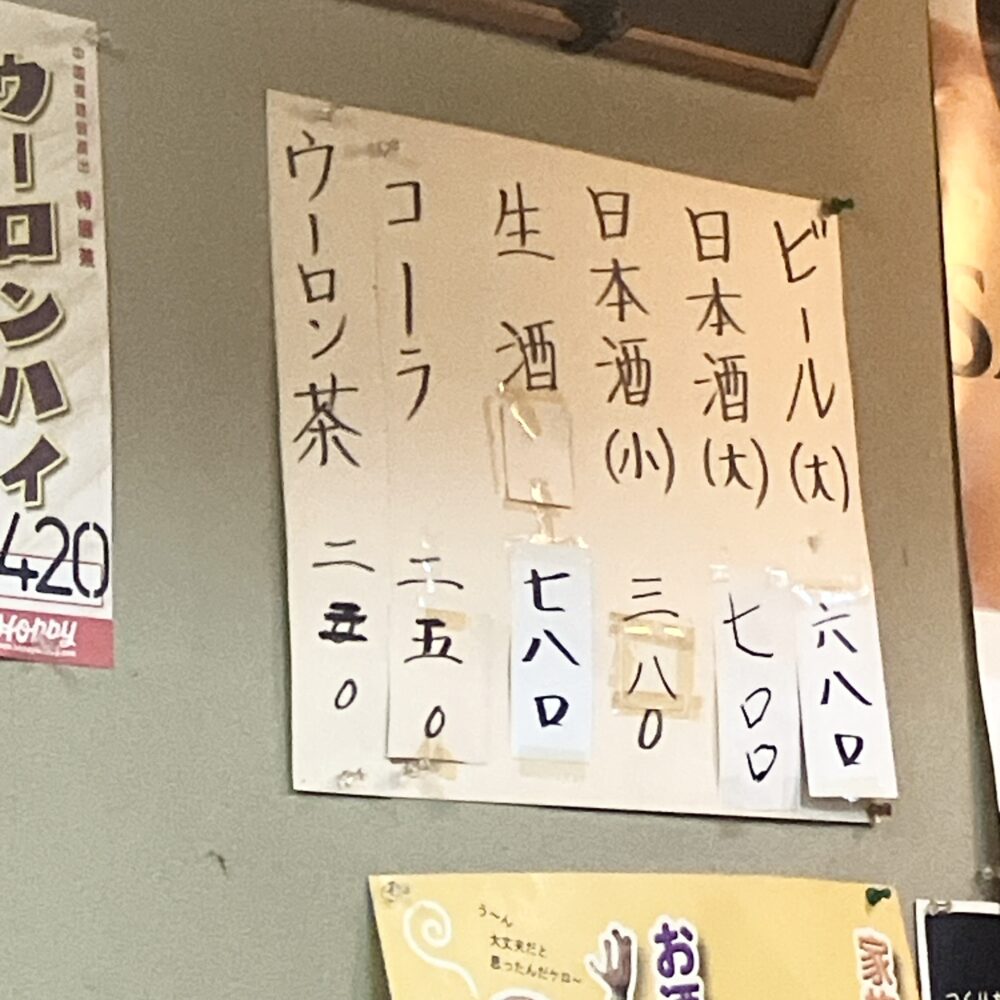 ビール(大) 六八〇
日本酒(大) 七〇〇
日本酒(小) 三八〇
生酒 七八〇
コーラ 二五〇
ウーロン茶 二五〇
特選茶
ウーロンハイ
420
Hoppy
う〜ん
大丈夫だと
思ったんだケロ〜
お酒
家